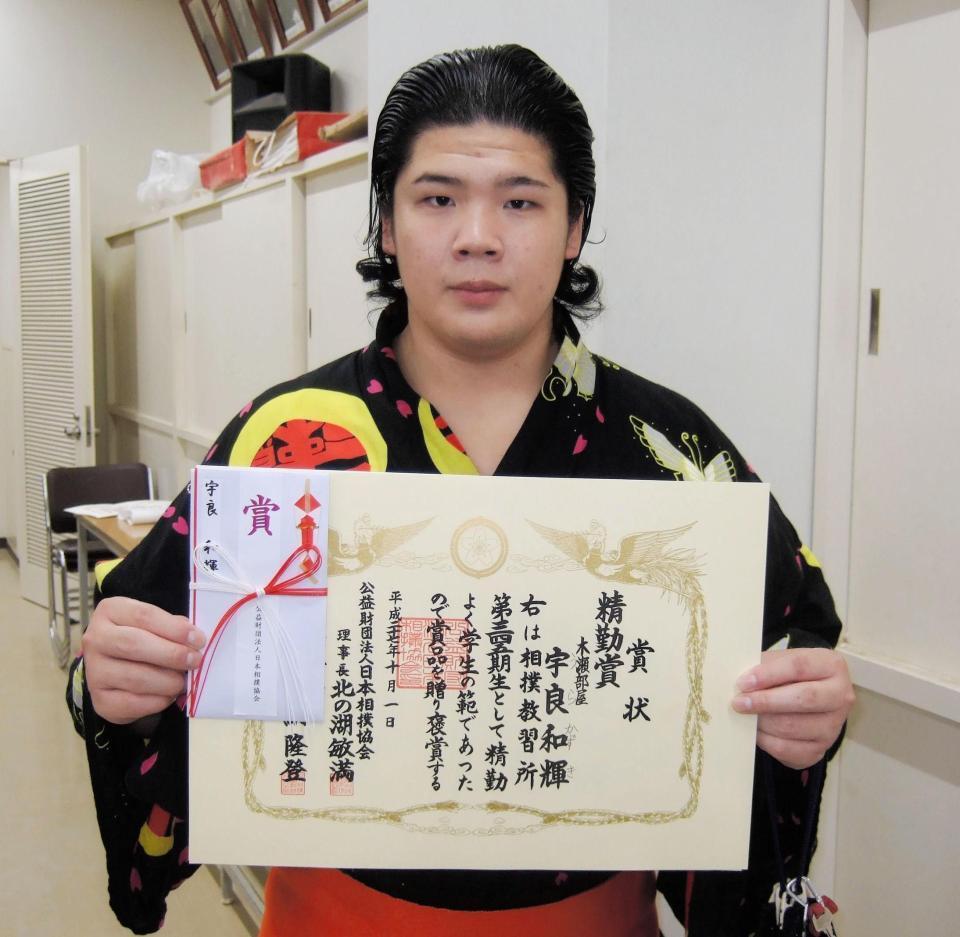 賞状
精勤賞
木瀬部屋
宇良和輝
右は相撲教習所
第三四五期生として精勤
よく学生の範であった
ので賞品を贈り褒賞する
平成二十七年十月一日
公益財団法人日本相撲協会
理事長 北の湖敏満
隆登
賞
宇良 和輝
公益財団法人日本相撲協会